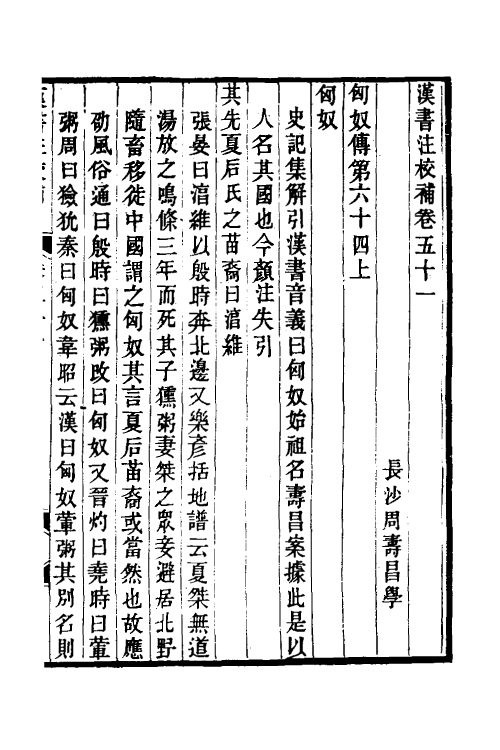 漢書注校補卷五十一
長沙周壽昌學
匈奴傳第六十四上
匈奴
史記集解引漢書音義曰匈奴始祖名壽昌案據此是以
人名其國也今顏注失引
其先夏后氏之苗裔曰淯維
張晏曰淯維以殷時奔北邊又樂彥括地譜云夏桀無道
湯放之鳴條三年而死其子獯粥妻桀之眾妾避居北野
隨畜移徙中國謂之匈奴其言夏后苗裔或當然也故應
劭風俗通曰殷時曰獯粥改曰匈奴又晉灼曰堯時曰葷
粥周曰獫狁秦曰匈奴韋昭云漢曰匈奴葷粥其別名則